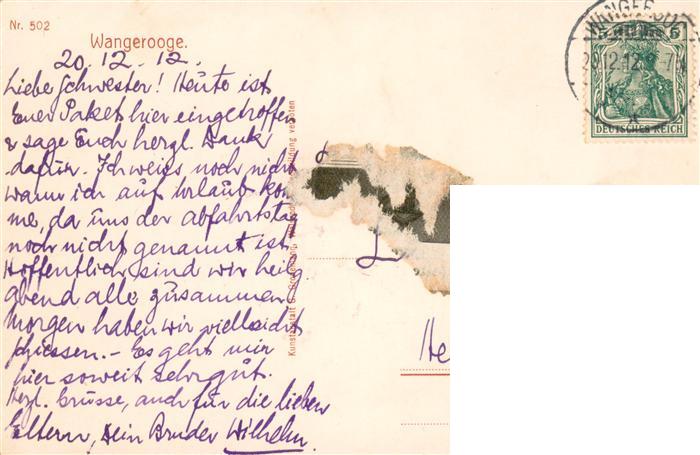 Nr. 502
Wangerooge.
20.12.12.
Liebe Schwester! Heute ist
Euer Paket hier eingetroffen
& sage Euch herzl. Dank
dafür. Ich weiss noch nicht
wann ich auf Urlaub kom-
me, da uns der Abfahrtstag
noch nicht genannt ist.
Hoffentlich sind wir heilg.
abend alle zusammen
Morgen haben wir vielleicht
schiessen. - Es geht mir
hier soweit sehr gut.
Herzl. Grüsse, auch für die lieben
Eltern, Dein Bruder Wilhelm.
Kunstanstalt
verboten
He
DEUTSCHES REICH